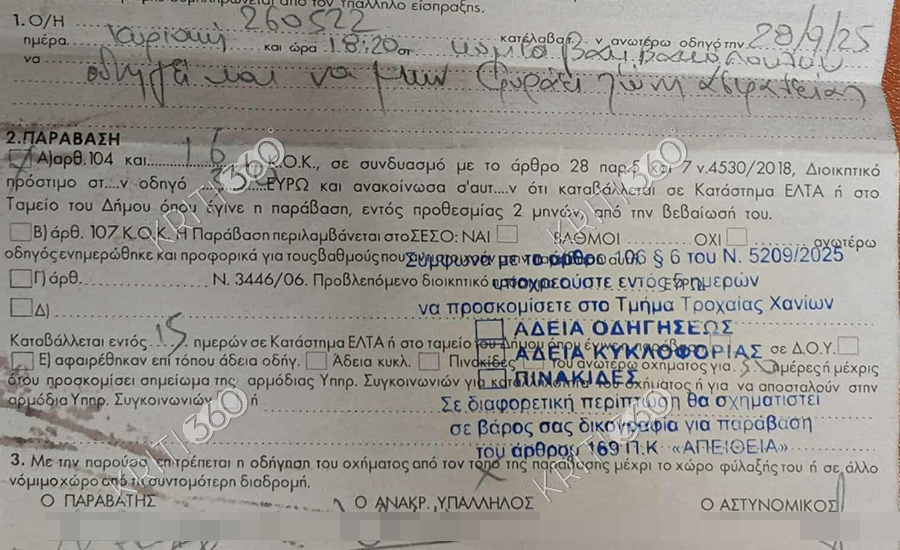 από τον Υπάλληλο είσπραξης.
1. Ο/Η 260522 κατέλαβ... ν ανωτέρω οδηγό την 28/9/25
ημέρα Κυριακή και ώρα 18:20 στ
να οδηγεί και να μην ζώνη ασφαλείας
2. ΠΑΡΑΒΑΣΗ
Α) αρθ. 104 και 16 Κ.Ο.Κ., σε συνδυασμό με το άρθρο 28 παρ. 6 και 7 ν.4530/2018, Διοικητικό
πρόστιμο στ....ν οδηγό ΕΥΡΩ και ανακοίνωσα σ'αυτ....ν ότι καταβάλλεται σε Κατάστημα ΕΛΤΑ ή στο
Ταμείο του Δήμου όπου έγινε η παράβαση, εντός προθεσμίας 2 μηνών, από την βεβαίωσή του.
Β) άρθ. 107 Κ.Ο.Κ. Η Παράβαση περιλαμβάνεται στο ΣΕΣΟ: ΝΑΙ ΒΑΘΜΟΙ ΟΧΙ ανωτέρω
οδηγός ενημερώθηκε και προφορικά για τους βαθμούς που
Σύμφωνα με το άρθρο 106 § 6 του Ν. 5209/2025
Γ) άρθ. Ν. 3446/06. Προβλεπόμενο διοικητικό ΕΥΡΩ
υποχρεούστε εντός 5 ημερών
να προσκομίσετε στο Τμήμα Τροχαίας Χανίων
Δ)
ΑΔΕΙΑ ΟΔΗΓΗΣΕΩΣ
Καταβάλλεται εντός 15 ημερών σε Κατάστημα ΕΛΤΑ ή στο ταμείο του Δήμου όπου έγινε παράβαση σε Δ.Ο.Υ.
ΑΔΕΙΑ ΚΥΚΛΟΦΟΡΙΑΣ
Ε) αφαιρέθηκαν επί τόπου άδεια οδήγ. Άδεια κυκλ. Πινακίδες του ανωτέρω οχήματος για ημέρες ή μέχρις
ΠΙΝΑΚΙΔΕΣ
ότου προσκομίσει σημείωμα της αρμόδιας Υπηρ. Συγκοινωνιών για του οχήματος ή για να αποσταλούν στην
αρμόδια Υπηρ. Συγκοινωνιών ή
Σε διαφορετική περίπτωση θα σχηματιστεί
σε βάρος σας δικογραφία για παράβαση
του άρθρου 169 Π.Κ «ΑΠΕΙΘΕΙΑ»
3. Με την παρούσα επιτρέπεται η οδήγηση του οχήματος από τον τόπο της παράβασης μέχρι το χώρο φύλαξής του ή σε άλλο
νόμιμο χώρο από τη συντομότερη διαδρομή.
Ο ΠΑΡΑΒΑΤΗΣ Ο ΑΝΑΚΡ. ΥΠΑΛΛΗΛΟΣ Ο ΑΣΤΥΝΟΜΙΚΟΣ
KRITI360
KRITI360
KRITI360
KRITI360